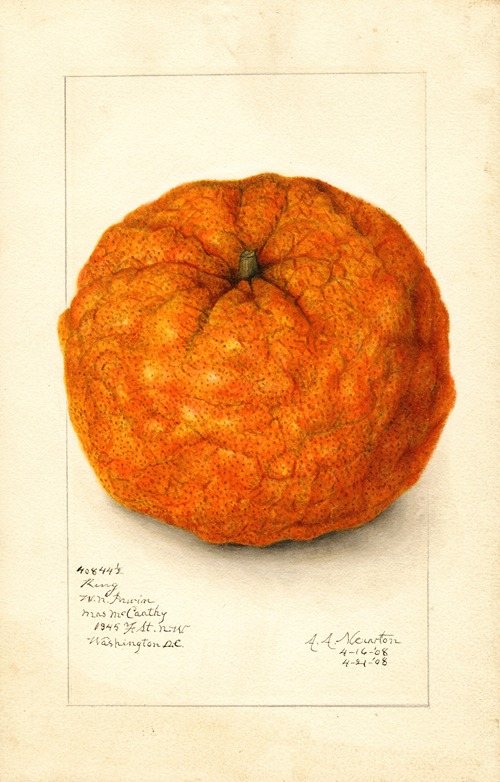 40844½
King
W. N. Irwin
Mrs McCarthy
1945 F. St. N.W
Washington D.C.
A. A. Newton
4-16-'08
4-21-'08